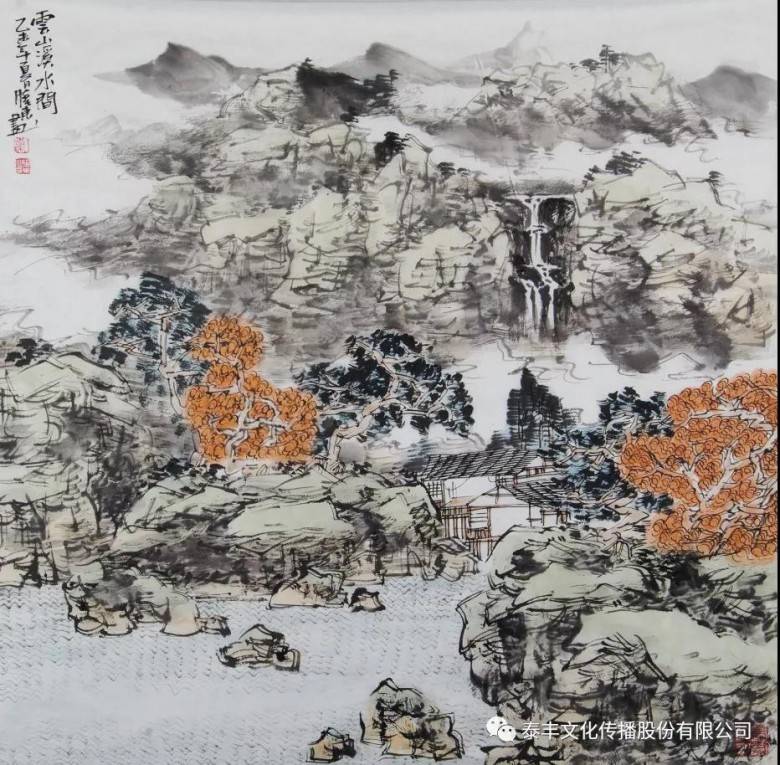 雲山溪水間
乙未年夏月
泰丰文化传播股份有限公司